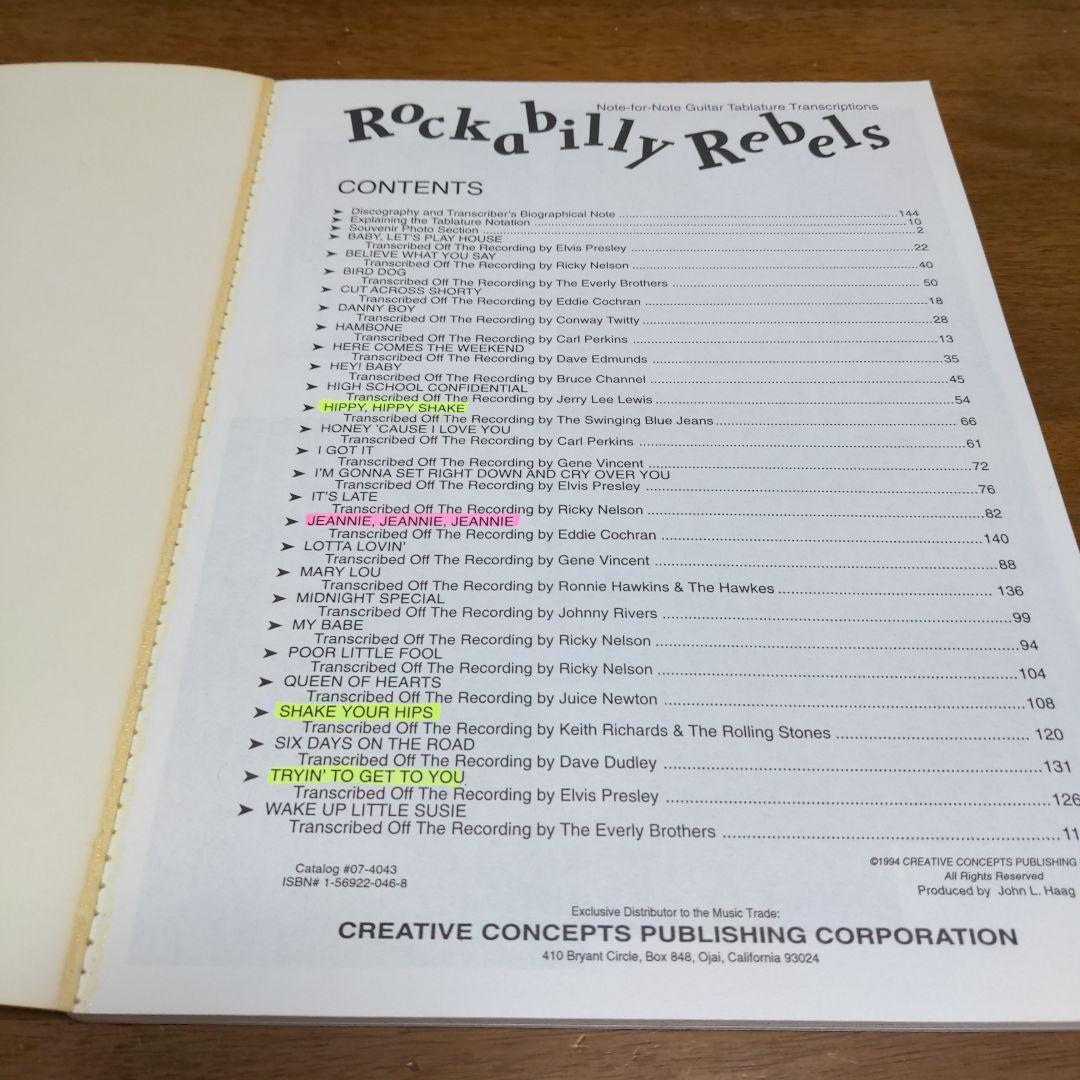 Note-for-Note Guitar Tablature Transcriptions
Rockabilly Rebels
CONTENTS
➤ Discography and Transcriber's Biographical Note ........ 144
➤ Explaining the Tablature Notation ........ 10
➤ Souvenir Photo Section ........ 2
➤ BABY, LET'S PLAY HOUSE
Transcribed Off The Recording by Elvis Presley ........ 22
➤ BELIEVE WHAT YOU SAY
Transcribed Off The Recording by Ricky Nelson ........ 40
➤ BIRD DOG
Transcribed Off The Recording by The Everly Brothers ........ 50
➤ CUT ACROSS SHORTY
Transcribed Off The Recording by Eddie Cochran ........ 18
➤ DANNY BOY
Transcribed Off The Recording by Conway Twitty ........ 28
➤ HAMBONE
Transcribed Off The Recording by Carl Perkins ........ 13
➤ HERE COMES THE WEEKEND
Transcribed Off The Recording by Dave Edmunds ........ 35
➤ HEY! BABY
Transcribed Off The Recording by Bruce Channel ........ 45
➤ HIGH SCHOOL CONFIDENTIAL
Transcribed Off The Recording by Jerry Lee Lewis ........ 54
➤ HIPPY, HIPPY SHAKE
Transcribed Off The Recording by The Swinging Blue Jeans ........ 66
➤ HONEY 'CAUSE I LOVE YOU
Transcribed Off The Recording by Carl Perkins ........ 61
➤ I GOT IT
Transcribed Off The Recording by Gene Vincent ........ 72
➤ I'M GONNA SET RIGHT DOWN AND CRY OVER YOU
Transcribed Off The Recording by Elvis Presley ........ 76
➤ IT'S LATE
Transcribed Off The Recording by Ricky Nelson ........ 82
➤ JEANNIE, JEANNIE, JEANNIE
Transcribed Off The Recording by Eddie Cochran ........ 140
➤ LOTTA LOVIN'
Transcribed Off The Recording by Gene Vincent ........ 88
➤ MARY LOU
Transcribed Off The Recording by Ronnie Hawkins & The Hawkes ........ 136
➤ MIDNIGHT SPECIAL
Transcribed Off The Recording by Johnny Rivers ........ 99
➤ MY BABE
Transcribed Off The Recording by Ricky Nelson ........ 94
➤ POOR LITTLE FOOL
Transcribed Off The Recording by Ricky Nelson ........ 104
➤ QUEEN OF HEARTS
Transcribed Off The Recording by Juice Newton ........ 108
➤ SHAKE YOUR HIPS
Transcribed Off The Recording by Keith Richards & The Rolling Stones ........ 120
➤ SIX DAYS ON THE ROAD
Transcribed Off The Recording by Dave Dudley ........ 131
➤ TRYIN' TO GET TO YOU
Transcribed Off The Recording by Elvis Presley ........ 126
➤ WAKE UP LITTLE SUSIE
Transcribed Off The Recording by The Everly Brothers ........ 11
Catalog #07-4043
ISBN# 1-56922-046-8
©1994 CREATIVE CONCEPTS PUBLISHING
All Rights Reserved
Produced by John L. Haag
Exclusive Distributor to the Music Trade:
CREATIVE CONCEPTS PUBLISHING CORPORATION
410 Bryant Circle, Box 848, Ojai, California 93024